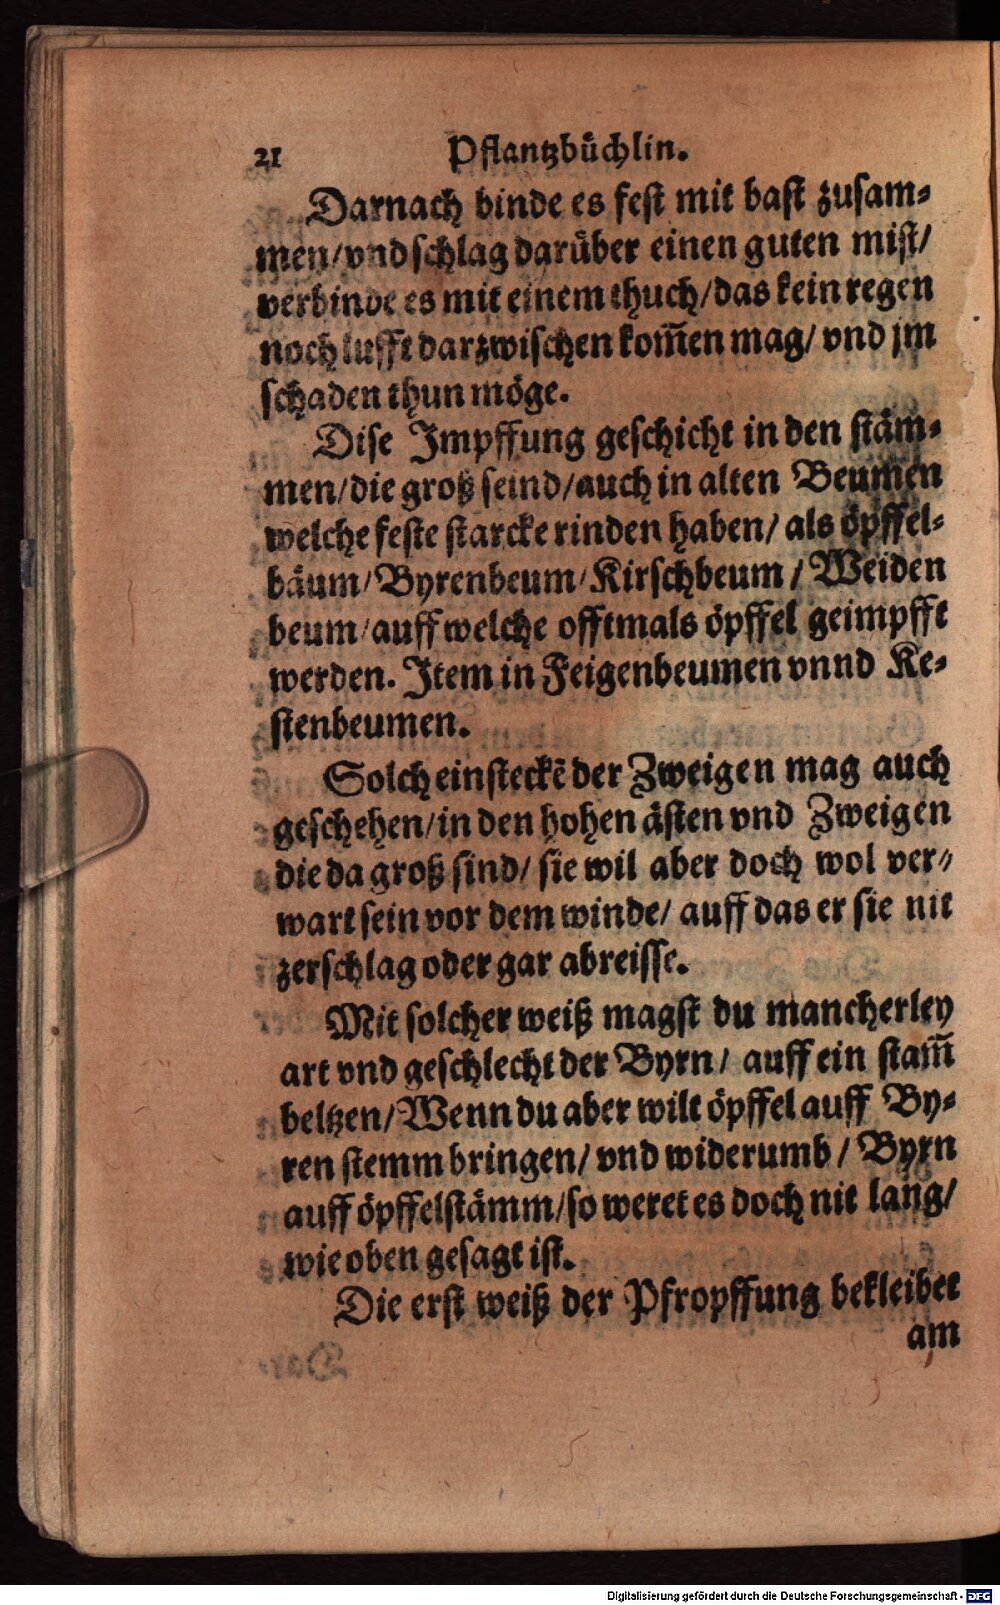 21 Pflantzbüchlin.
Darnach binde es fest mit bast zusam-
men/vnd schlag darüber einen guten mist/
verbinde es mit einem thuch/das kein regen
noch lufft darzwischen kom̃en mag/ vnd jm
schaden thun möge.
Dise Impffung geschicht in den stäm-
men/die groß seind/auch in alten Beumen
welche feste starcke rinden haben/ als öpffel-
bäum/Byrenbeum/Kirschbeum/Weiden
beum/auff welche offtmals öpffel geimpfft
werden. Item in Feigenbeumen vnnd Ke-
stenbeumen.
Solch einsteckẽ der Zweigen mag auch
geschehen/in den hohen ästen vnd Zweigen
die da groß sind/ sie wil aber doch wol ver-
wart sein vor dem winde/ auff das er sie nit
zerschlag oder gar abreisse.
Mit solcher weiß magst du mancherley
art vnd geschlecht der Byrn/ auff ein stam̃
beltzen/Wenn du aber wilt öpffel auff By-
ren stemm bringen/ vnd widerumb/ Byrn
auff öpffelstämm/so weret es doch nit lang/
wie oben gesagt ist.
Die erst weiß der Pfropffung bekleibet
am
Digitalisierung gefördert durch die Deutsche Forschungsgemeinschaft - DFG